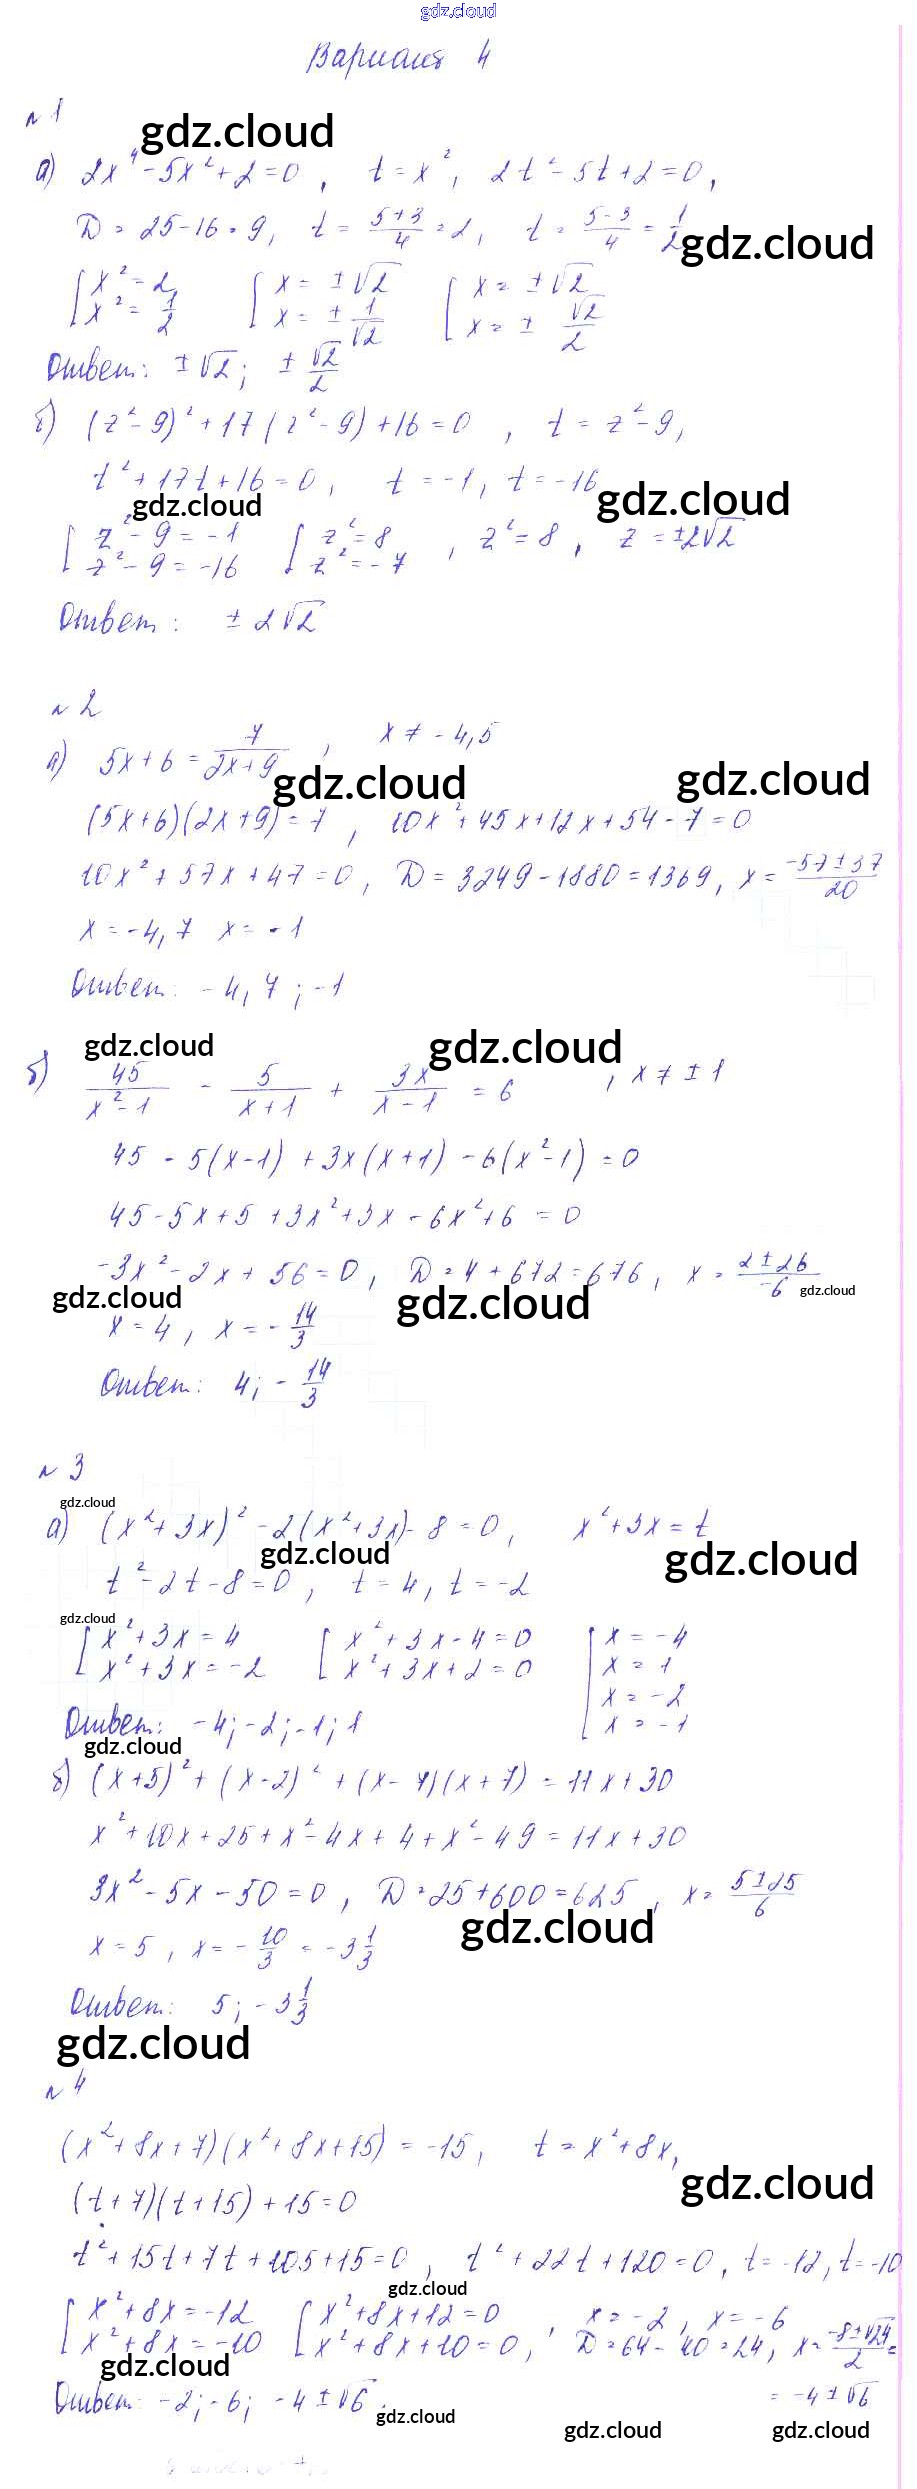 gdz.cloud
Вариант 4
№ 1
gdz.cloud
а) 2x⁴ - 5x² + 2 = 0, t = x², 2t² - 5t + 2 = 0,
D = 25 - 16 = 9, t = (5+3)/4 = 2, t = (5-3)/4 = 1/2
gdz.cloud
[x² = 2 [x = ±√2 [x = ±√2
[x² = 1/2 [x = ± 1/√2 [x = ± √2/2
Ответ: ±√2; ± √2/2
б) (z² - 9)² + 17(z² - 9) + 16 = 0, t = z² - 9,
t² + 17t + 16 = 0, t = -1, t = -16
gdz.cloud gdz.cloud
[z² - 9 = -1 [z² = 8, z² = 8, z = ±2√2
[z² - 9 = -16 [z² = -7
Ответ: ± 2√2
№ 2
а) 5x + 6 = 7/(2x+9), x ≠ -4,5
gdz.cloud gdz.cloud
(5x+6)(2x+9) = 7, 10x² + 45x + 12x + 54 - 7 = 0
10x² + 57x + 47 = 0, D = 3249 - 1880 = 1369, x = (-57 ± 37)/20
x = -4,7 x = -1
Ответ: -4,7; -1
gdz.cloud gdz.cloud
б) 45/(x²-1) - 5/(x+1) + 3x/(x-1) = 6, x ≠ ±1
45 - 5(x-1) + 3x(x+1) - 6(x²-1) = 0
45 - 5x + 5 + 3x² + 3x - 6x² + 6 = 0
-3x² - 2x + 56 = 0, D = 4 + 672 = 676, x = (2 ± 26)/-6
gdz.cloud gdz.cloud gdz.cloud
x = 4, x = - 14/3
Ответ: 4; - 14/3
№ 3
gdz.cloud
а) (x² + 3x)² - 2(x² + 3x) - 8 = 0, x² + 3x = t
gdz.cloud gdz.cloud
t² - 2t - 8 = 0, t = 4, t = -2
gdz.cloud
[x² + 3x = 4 [x² + 3x - 4 = 0 [x = -4
[x² + 3x = -2 [x² + 3x + 2 = 0 x = 1
x = -2
Ответ: -4; -2; -1; 1 x = -1
gdz.cloud
б) (x+5)² + (x-2)² + (x-7)(x+7) = 11x + 30
x² + 10x + 25 + x² - 4x + 4 + x² - 49 = 11x + 30
3x² - 5x - 50 = 0, D = 25 + 600 = 625, x = (5 ± 25)/6
gdz.cloud
x = 5, x = - 10/3 = -3 1/3
Ответ: 5; -3 1/3
gdz.cloud
№ 4
(x² + 8x + 7)(x² + 8x + 15) = -15, t = x² + 8x,
gdz.cloud
(t+7)(t+15) + 15 = 0
t² + 15t + 7t + 105 + 15 = 0, t² + 22t + 120 = 0, t = -12, t = -10
gdz.cloud
[x² + 8x = -12 [x² + 8x + 12 = 0, x = -2, x = -6
[x² + 8x = -10 [x² + 8x + 10 = 0, D = 64 - 40 = 24, x = (-8 ± √24)/2 =
gdz.cloud
= -4 ± √6
Ответ: -2; -6; -4 ± √6.
gdz.cloud
gdz.cloud gdz.cloud